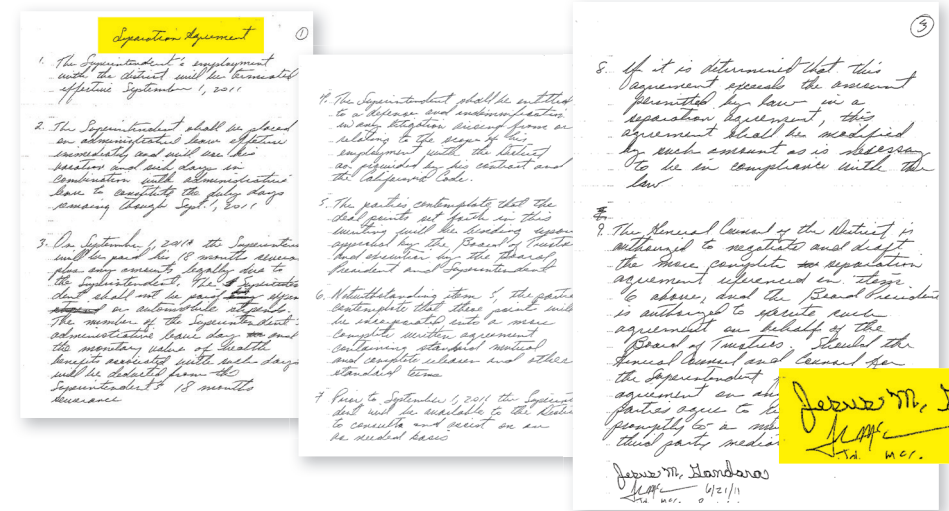 Separation Agreement
①
1. The Superintendent's employment
with the district will be terminated
effective September 1, 2011
2. The Superintendent shall be placed
on administrative leave effective
immediately and will use his
vacation and sick days in
combination with administrative
leave to constitute the duty days
remaining through Sept. 1, 2011
3. On September 1, 2011 the Superinten
will be paid his 18 months severan
plus any amounts legally due to
the Superintendent. The Superinten
dent shall not be paid
or automobile stipends.
The number of the Superintendent
administrative leave days and
the monetary value of health
benefits associated with such days
will be deducted from the
Superintendent's 18 months
severance
4. The Superintendent shall be entitled
to a defense and indemnification
in any litigation arising from or
relating to the scope of his
employment with the District
as provided in his contract and
the California Code.
5. The parties contemplate that the
deal points set forth in this
writing will be binding upon
approval by the Board of Trustee
and execution by the Board
President and Superintendent
6. Notwithstanding item 5, the partie
contemplate that these points will
be incorporated into a more
complete written agreement
containing standard mutual
and complete releases and other
standard terms
7 Prior to September 1, 2011 the Superin
dent will be available to the Distric
to consult and assist on an
as needed basis
③
8. If it is determined that this
agreement exceeds the amount
permitted by law in a
separation agreement, this
agreement shall be modified
by such amount as is necessary
to be in compliance with the
law
9. The General Counsel of the District is
authorized to negotiate and draft
the more complete separation
agreement referenced in item
6 above, and the Board President
is authorized to execute such
agreement on behalf of the
Board of Trustees. Should the
General Counsel and Counsel for
the Superintendent
agreement on any
parties agree to
promptly to a
third party media
Jesus M. Gandara
6/21/11
Jesus M. G